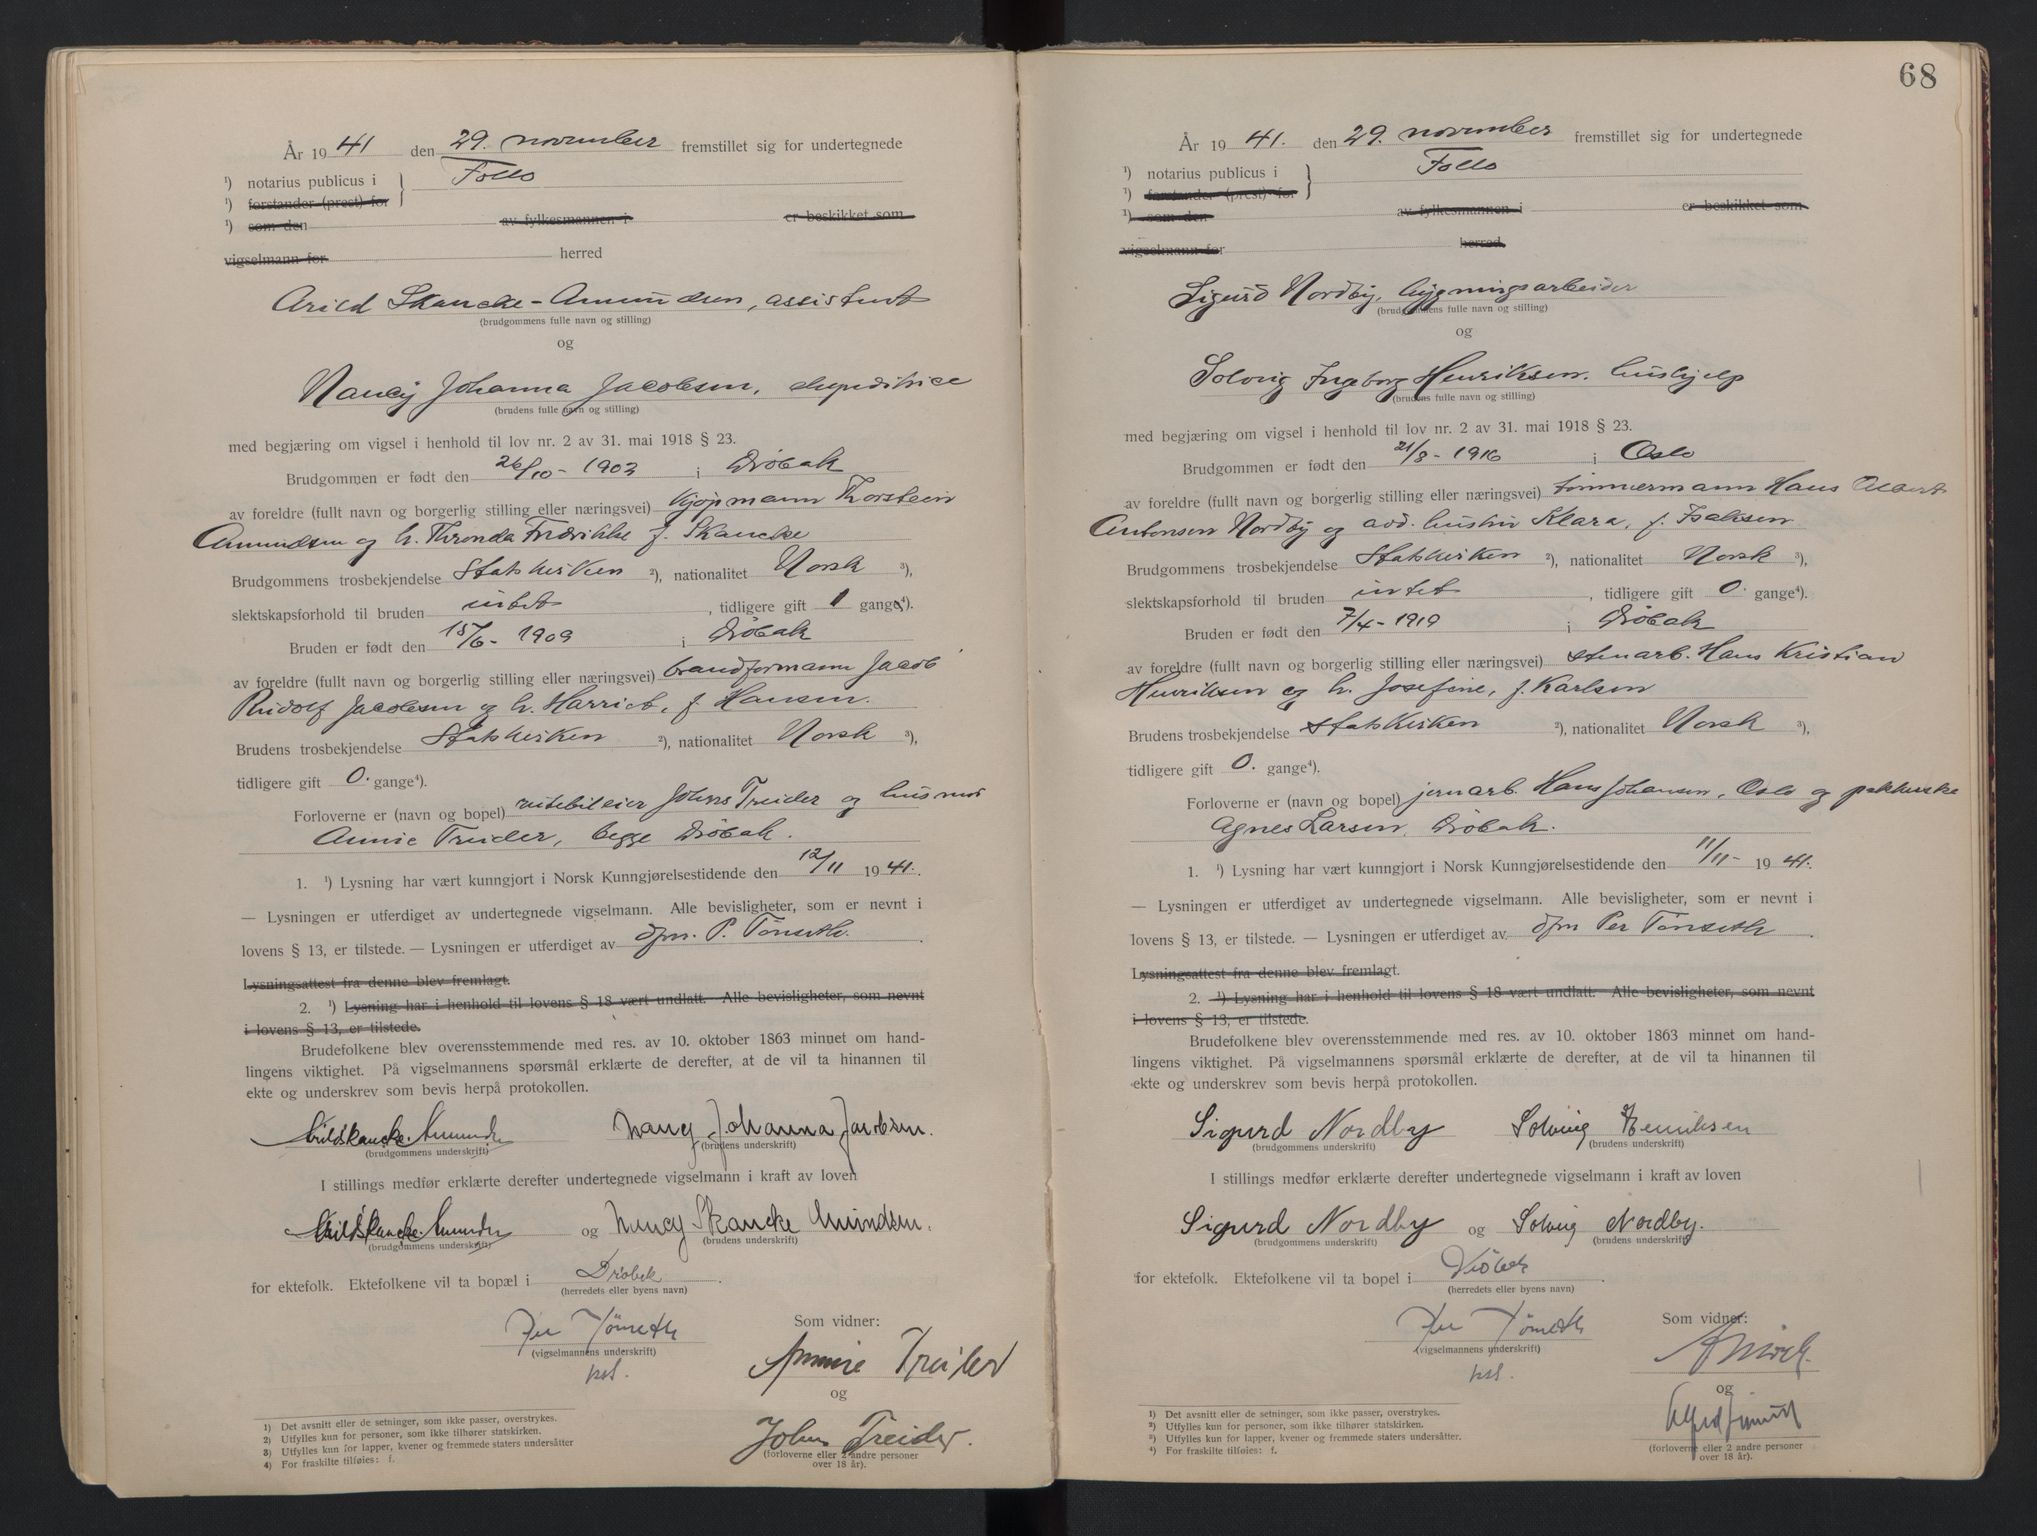 År 1941 den 29. november fremstillet sig for undertegnede
¹) notarius publicus i Follo
¹) forstander (prest) for
¹) som den av fylkesmannen i er beskikket som
vigselmann for herred
Arild Skancke-Amundsen, assistent
(brudgommens fulle navn og stilling)
og
Nancy Johanna Jacobsen, ekspeditrice
(brudens fulle navn og stilling)
med begjæring om vigsel i henhold til lov nr. 2 av 31. mai 1918 § 23.
Brudgommen er født den 26/10 - 1902 i Drøbak
av foreldre (fullt navn og borgerlig stilling eller næringsvei) kjøpmann Thorstein
Amundsen og h. Thronda Fredrikke f. Skancke
Brudgommens trosbekjendelse Statskirken ²), nationalitet Norsk ³),
slektskapsforhold til bruden intet, tidligere gift 1 gange⁴).
Bruden er født den 15/6 - 1909 i Drøbak
av foreldre (fullt navn og borgerlig stilling eller næringsvei) brandformann Jacob
Rudolf Jacobsen og h. Harriet, f. Hansen.
Brudens trosbekjendelse Statskirken ²), nationalitet Norsk ³),
tidligere gift 0. gange⁴).
Forloverne er (navn og bopel) rutebileier Johns Treider og husmor
Annie Treider, begge Drøbak.
1. ¹) Lysning har vært kunngjort i Norsk Kunngjørelsestidende den 12/11 1941.
— Lysningen er utferdiget av undertegnede vigselmann. Alle bevisligheter, som er nevnt i
lovens § 13, er tilstede. — Lysningen er utferdiget av dfm. P. Tønseth.
Lysningsattest fra denne blev fremlagt.
2. ¹) Lysning har i henhold til lovens § 18 vært undlatt. Alle bevisligheter, som nevnt
i lovens § 13, er tilstede.
Brudefolkene blev overensstemmende med res. av 10. oktober 1863 minnet om hand-
lingens viktighet. På vigselmannens spørsmål erklærte de derefter, at de vil ta hinannen til
ekte og underskrev som bevis herpå protokollen.
Arild Skancke Amundsen Nancy Johanna Jacobsen.
(brudgommens underskrift) (brudens underskrift)
I stillings medfør erklærte derefter undertegnede vigselmann i kraft av loven
Arild Skancke Amundsen og Nancy Skancke Amundsen.
(brudgommens underskrift) (brudens underskrift)
for ektefolk. Ektefolkene vil ta bopæl i Drøbak.
(herredets eller byens navn)
Per Tönseth
(vigselmannens underskrift)
Som vidner:
Annie Treider
og
Johns Treider.
(forloverne eller 2 andre personer
over 18 år).
1) Det avsnitt eller de setninger, som ikke passer, overstrykes.
2) Utfylles kun for personer, som ikke tilhører statskirken.
3) Utfylles kun for lapper, kvener og fremmede staters undersåtter
4) For fraskilte tilføies: f.
68
År 1941. den 29. november fremstillet sig for undertegnede
¹) notarius publicus i Follo
¹) forstander (prest) for
¹) som den av fylkesmannen i er beskikket som
vigselmann for herred
Sigurd Nordby, bygningsarbeider
(brudgommens fulle navn og stilling)
og
Solvig Ingeborg Henriksen, hushjelp
(brudens fulle navn og stilling)
med begjæring om vigsel i henhold til lov nr. 2 av 31. mai 1918 § 23.
Brudgommen er født den 21/8 - 1916 i Oslo
av foreldre (fullt navn og borgerlig stilling eller næringsvei) tømmermann Hans Albert
Antonsen Nordby og avd. hustru Klara, f. Isaksen
Brudgommens trosbekjendelse Statskirken ²), nationalitet Norsk ³),
slektskapsforhold til bruden intet, tidligere gift 0. gange⁴).
Bruden er født den 7/4 - 1919 i Drøbak
av foreldre (fullt navn og borgerlig stilling eller næringsvei) stenarb. Hans Kristian
Henriksen og h. Josefine, f. Karlsen
Brudens trosbekjendelse Statskirken ²), nationalitet Norsk ³),
tidligere gift 0. gange⁴).
Forloverne er (navn og bopel) jernarb. Hans Johansen, Oslo og pakkerske
Agnes Larsen, Drøbak.
1. ¹) Lysning har vært kunngjort i Norsk Kunngjørelsestidende den 11/11 - 1941.
— Lysningen er utferdiget av undertegnede vigselmann. Alle bevisligheter, som er nevnt i
lovens § 13, er tilstede. — Lysningen er utferdiget av dfm Per Tönseth.
Lysningsattest fra denne blev fremlagt.
2. ¹) Lysning har i henhold til lovens § 18 vært undlatt. Alle bevisligheter, som nevnt
i lovens § 13, er tilstede.
Brudefolkene blev overensstemmende med res. av 10. oktober 1863 minnet om hand-
lingens viktighet. På vigselmannens spørsmål erklærte de derefter, at de vil ta hinannen til
ekte og underskrev som bevis herpå protokollen.
Sigurd Nordby Solvig Henriksen
(brudgommens underskrift) (brudens underskrift)
I stillings medfør erklærte derefter undertegnede vigselmann i kraft av loven
Sigurd Nordby og Solvig Nordby.
(brudgommens underskrift) (brudens underskrift)
for ektefolk. Ektefolkene vil ta bopel i Drøbak.
(herredets eller byens navn)
Per Tönseth
(vigselmannens underskrift)
Som vidner:
og
Alfred
(forloverne eller 2 andre personer
over 18 år).
¹) Det avsnitt eller de setninger, som ikke passer, overstrykes.
²) Utfylles kun for personer, som ikke tilhører statskirken.
³) Utfylles kun for lapper, kvener og fremmede staters undersåtter.
⁴) For fraskilte tilføies: f.